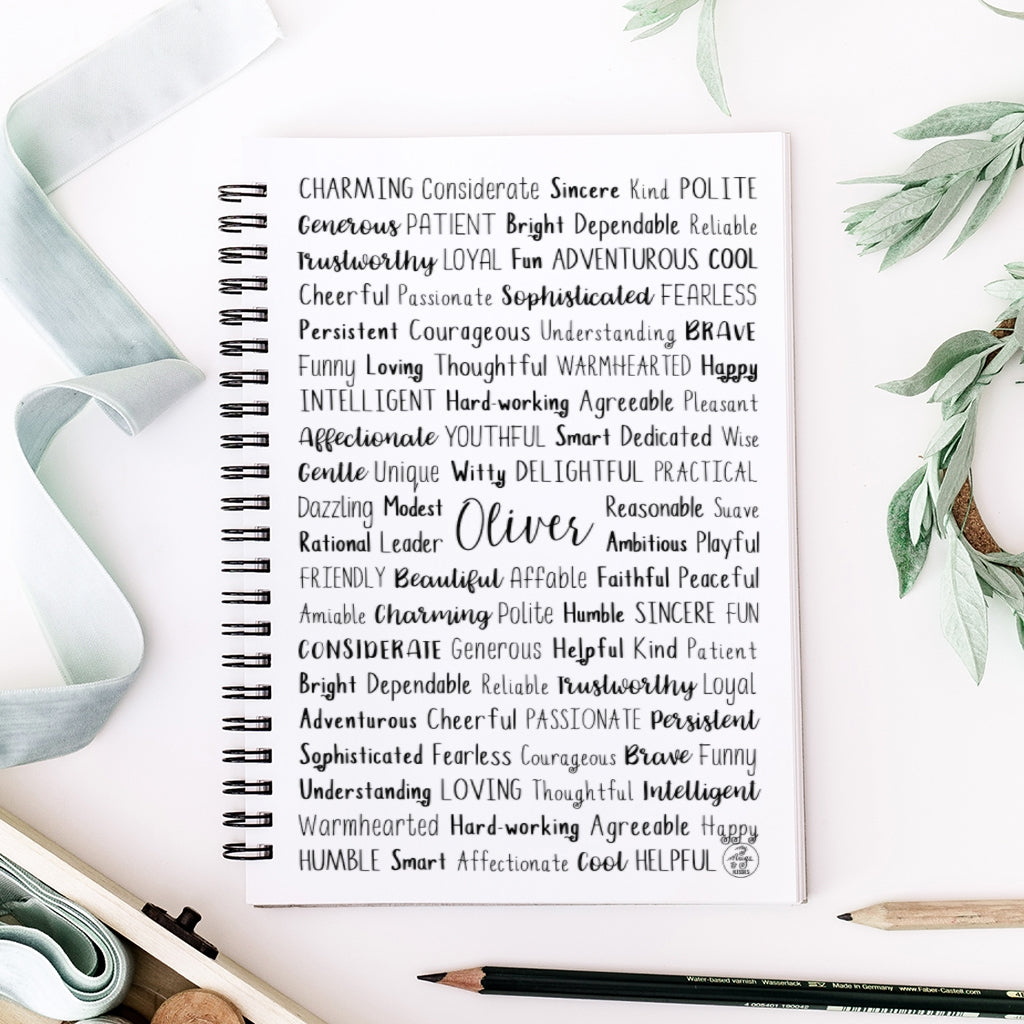 CHARMING Considerate Sincere Kind POLITE
Generous PATIENT Bright Dependable Reliable
Trustworthy LOYAL Fun ADVENTUROUS COOL
Cheerful Passionate Sophisticated FEARLESS
Persistent Courageous Understanding BRAVE
Funny Loving Thoughtful WARMHEARTED Happy
INTELLIGENT Hard-working Agreeable Pleasant
Affectionate YOUTHFUL Smart Dedicated Wise
Gentle Unique Witty DELIGHTFUL PRACTICAL
Dazzling Modest Reasonable Suave
Oliver
Rational Leader Ambitious Playful
FRIENDLY Beautiful Affable Faithful Peaceful
Amiable Charming Polite Humble SINCERE FUN
CONSIDERATE Generous Helpful Kind Patient
Bright Dependable Reliable Trustworthy Loyal
Adventurous Cheerful PASSIONATE Persistent
Sophisticated Fearless Courageous Brave Funny
Understanding LOVING Thoughtful Intelligent
Warmhearted Hard-working Agreeable Happy
HUMBLE Smart Affectionate Cool HELPFUL
Water-based varnish Wasserlack Made in Germany www.Faber-Castell.com
4 005401 190042